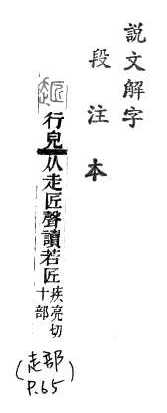 説文解字
段注本
行皃从走匠聲讀若匠疾亮切
十部
(走部)
P.65